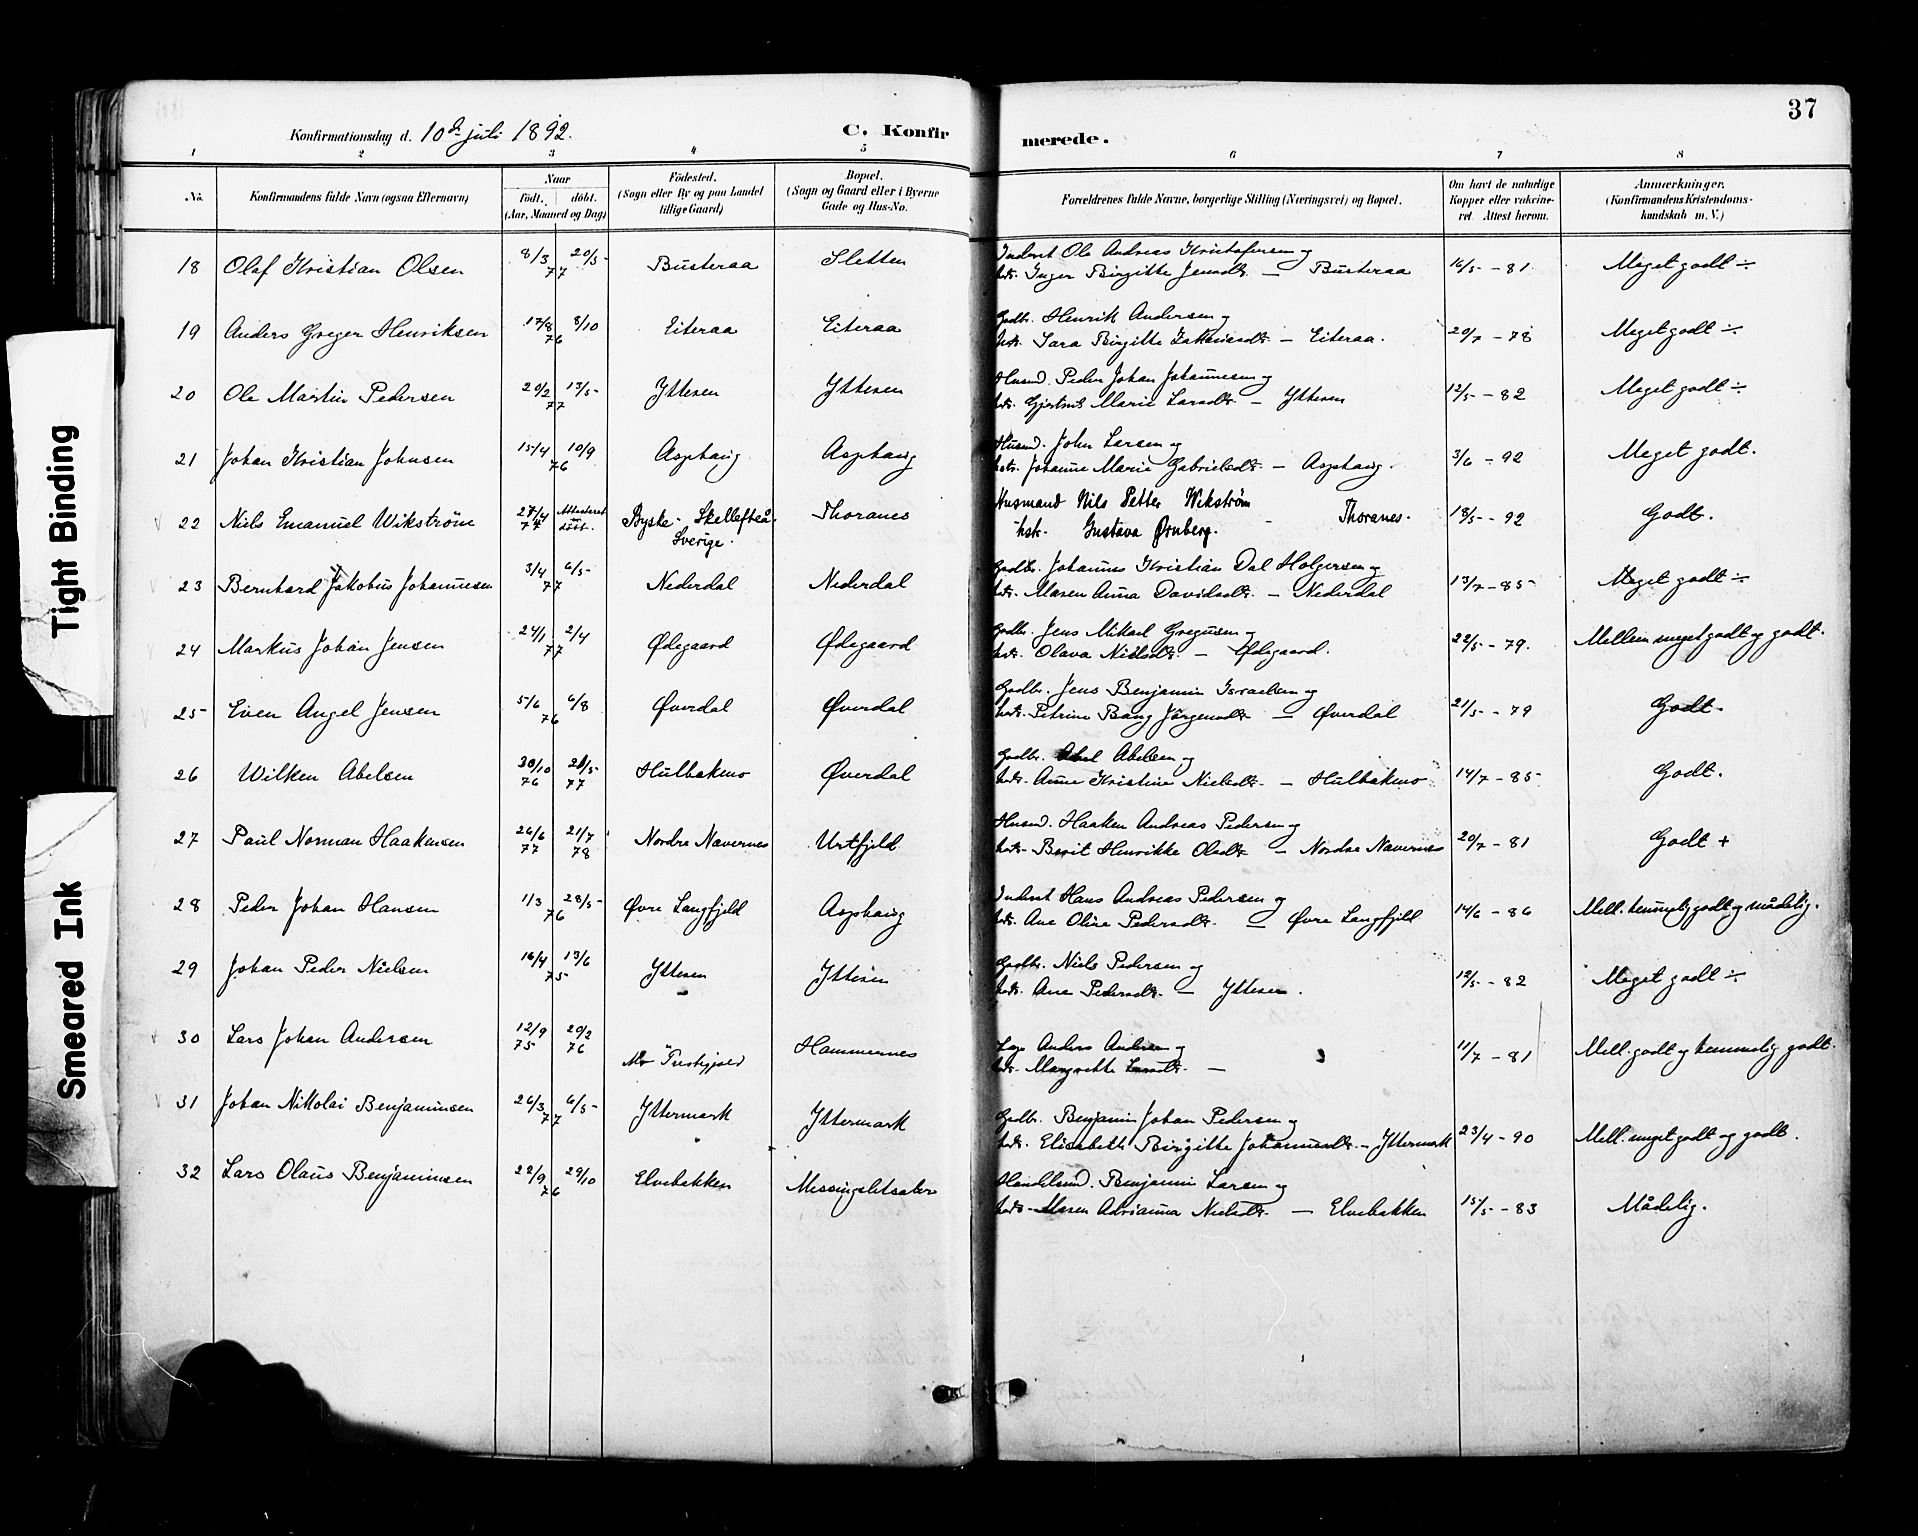 37
Konfirmationsdag d. 10de juli 1892.
C. Konfirmerede.
1 2 3 4 5 6 7 8
No.
Konfirmandens fulde Navn (ogsaa Efternavn)
Naar
født. døbt.
(Aar, Maaned og Dag)
Fødested.
(Sogn eller By og paa Landet
tillige Gaard)
Bopæl.
(Sogn og Gaard eller i Byerne
Gade og Hus-No.
Forældrenes fulde Navne, borgerlige Stilling (Næringsvei) og Bopæl.
Om havt de naturlige
Kopper eller vakcine-
ret. Attest herom.
Anmærkninger.
(Konfirmandens Kristendoms-
kundskab m. V.)
18 Olaf Kristian Olsen 8/3 20/5 77 Busteraa Sletten
Inderst Ole Andreas Kristofersen og
hstr. Inger Birgitte Jensdtr. — Busteraa 16/5 - 81 Meget godt ÷
19 Anders Greger Henriksen 17/8 8/10 76 Eiteraa Eiteraa
Gadbr. Henrik Andersen og
hstr. Sara Birgitte Zakariasdtr. — Eiteraa. 20/7 - 78 Meget godt ÷
20 Ole Martin Pedersen 20/2 13/5 77 Ytteren Ytteren
Husmd. Peder Johan Johannesen og
hstr. Gjertrud Marie Larsdtr. — Ytteren 12/5 - 82 Meget godt ÷
21 Johan Kristian Johnsen 15/4 10/9 76 Asphaug Asphaug
Husmd. John Larsen og
hstr. Johanne Marie Gabrielsdtr. — Asphaug. 3/6 - 92 Meget godt.
22 Niels Emanuel Wikstrøm 27/4 77 Attesteret døbt. Byske - Skellefteå Sverige. Thoranes
Husmand Nils Petter Wikstrøm
hstr. Gustava Ørnberg. - Thoranes. 18/5 - 92 Godt.
23 Bernhard Jakobus Johannesen 3/4 6/5 77 Nederdal Nederdal
Gadbr. Johannes Kristian Dal Holgersen og
hstr. Maren Anna Davidsdtr. — Nederdal 13/7 - 85 Meget godt ÷
24 Markus Johan Jensen 24/1 2/4 77 Ødegaard Ødegaard
Gadbr. Jens Mikael Gregusen og
hstr. Olava Nilsdtr. — Ødegaard. 22/5 - 79. Mellem meget godt og godt.
25 Even Angel Jensen 5/6 6/8 76 Øverdal Øverdal
Gadbr. Jens Benjamin Israelsen og
hstr. Petrine Bang Jørgensdtr — Øverdal 21/5 - 79 Godt.
26 Wilken Abelsen 30/10 76 21/5 77 Hulbakmo Øverdal
Gadbr. Abel Abelsen og
hstr. Anne Kristine Nielsdtr. — Hulbakmo 14/7 - 85 Godt.
27 Paul Norman Haakensen 26/6 77 21/7 78 Nordre Nævernes Urtfjeld
Husmd. Haaken Andreas Pedersen og
hstr. Berit Henrikke Olsdtr — Nordre Nævernes 20/7 - 81 Godt +
28 Peder Johan Hansen 1/3 28/5 76 Øvre Langfjeld Asphaug
Inderst Hans Andreas Pedersen og
hstr. Ane Oline Pedersdtr. — Øvre Langfjeld 14/6 - 86 Mell. temmelig godt og mådelig.
29 Johan Peder Nielsen 16/4 13/6 75 Ytteren Ytteren
Gadbr. Niels Pedersen og
hstr. Ane Pedersdtr. — Ytteren. 12/5 - 82 Meget godt ÷
30 Lars Johan Andersen 12/9 75 20/2 76 Mo Prestegjæld Hammernes
Lap Anders Andersen og
hstr. Margrethe Larsdtr. — 11/7 - 81 Mell. godt og temmelig godt.
31 Johan Nikolai Benjaminsen 26/3 6/5 77 Yttermark Yttermark
Gadbr. Benjamin Johan Pedersen og
hstr. Elisabeth Birgitte Johannesdtr. — Yttermark 23/4 - 90 Mell. meget godt og godt.
32 Lars Olaus Benjaminsen 22/9 29/10 76 Elvebakken Messingsletsater
Handelsmd. Benjamin Larsen og
hstr. Maren Adrianna Nielsdtr. — Elvebakken 15/5 - 83 Mådelig.
Tight Binding
Smeared Ink